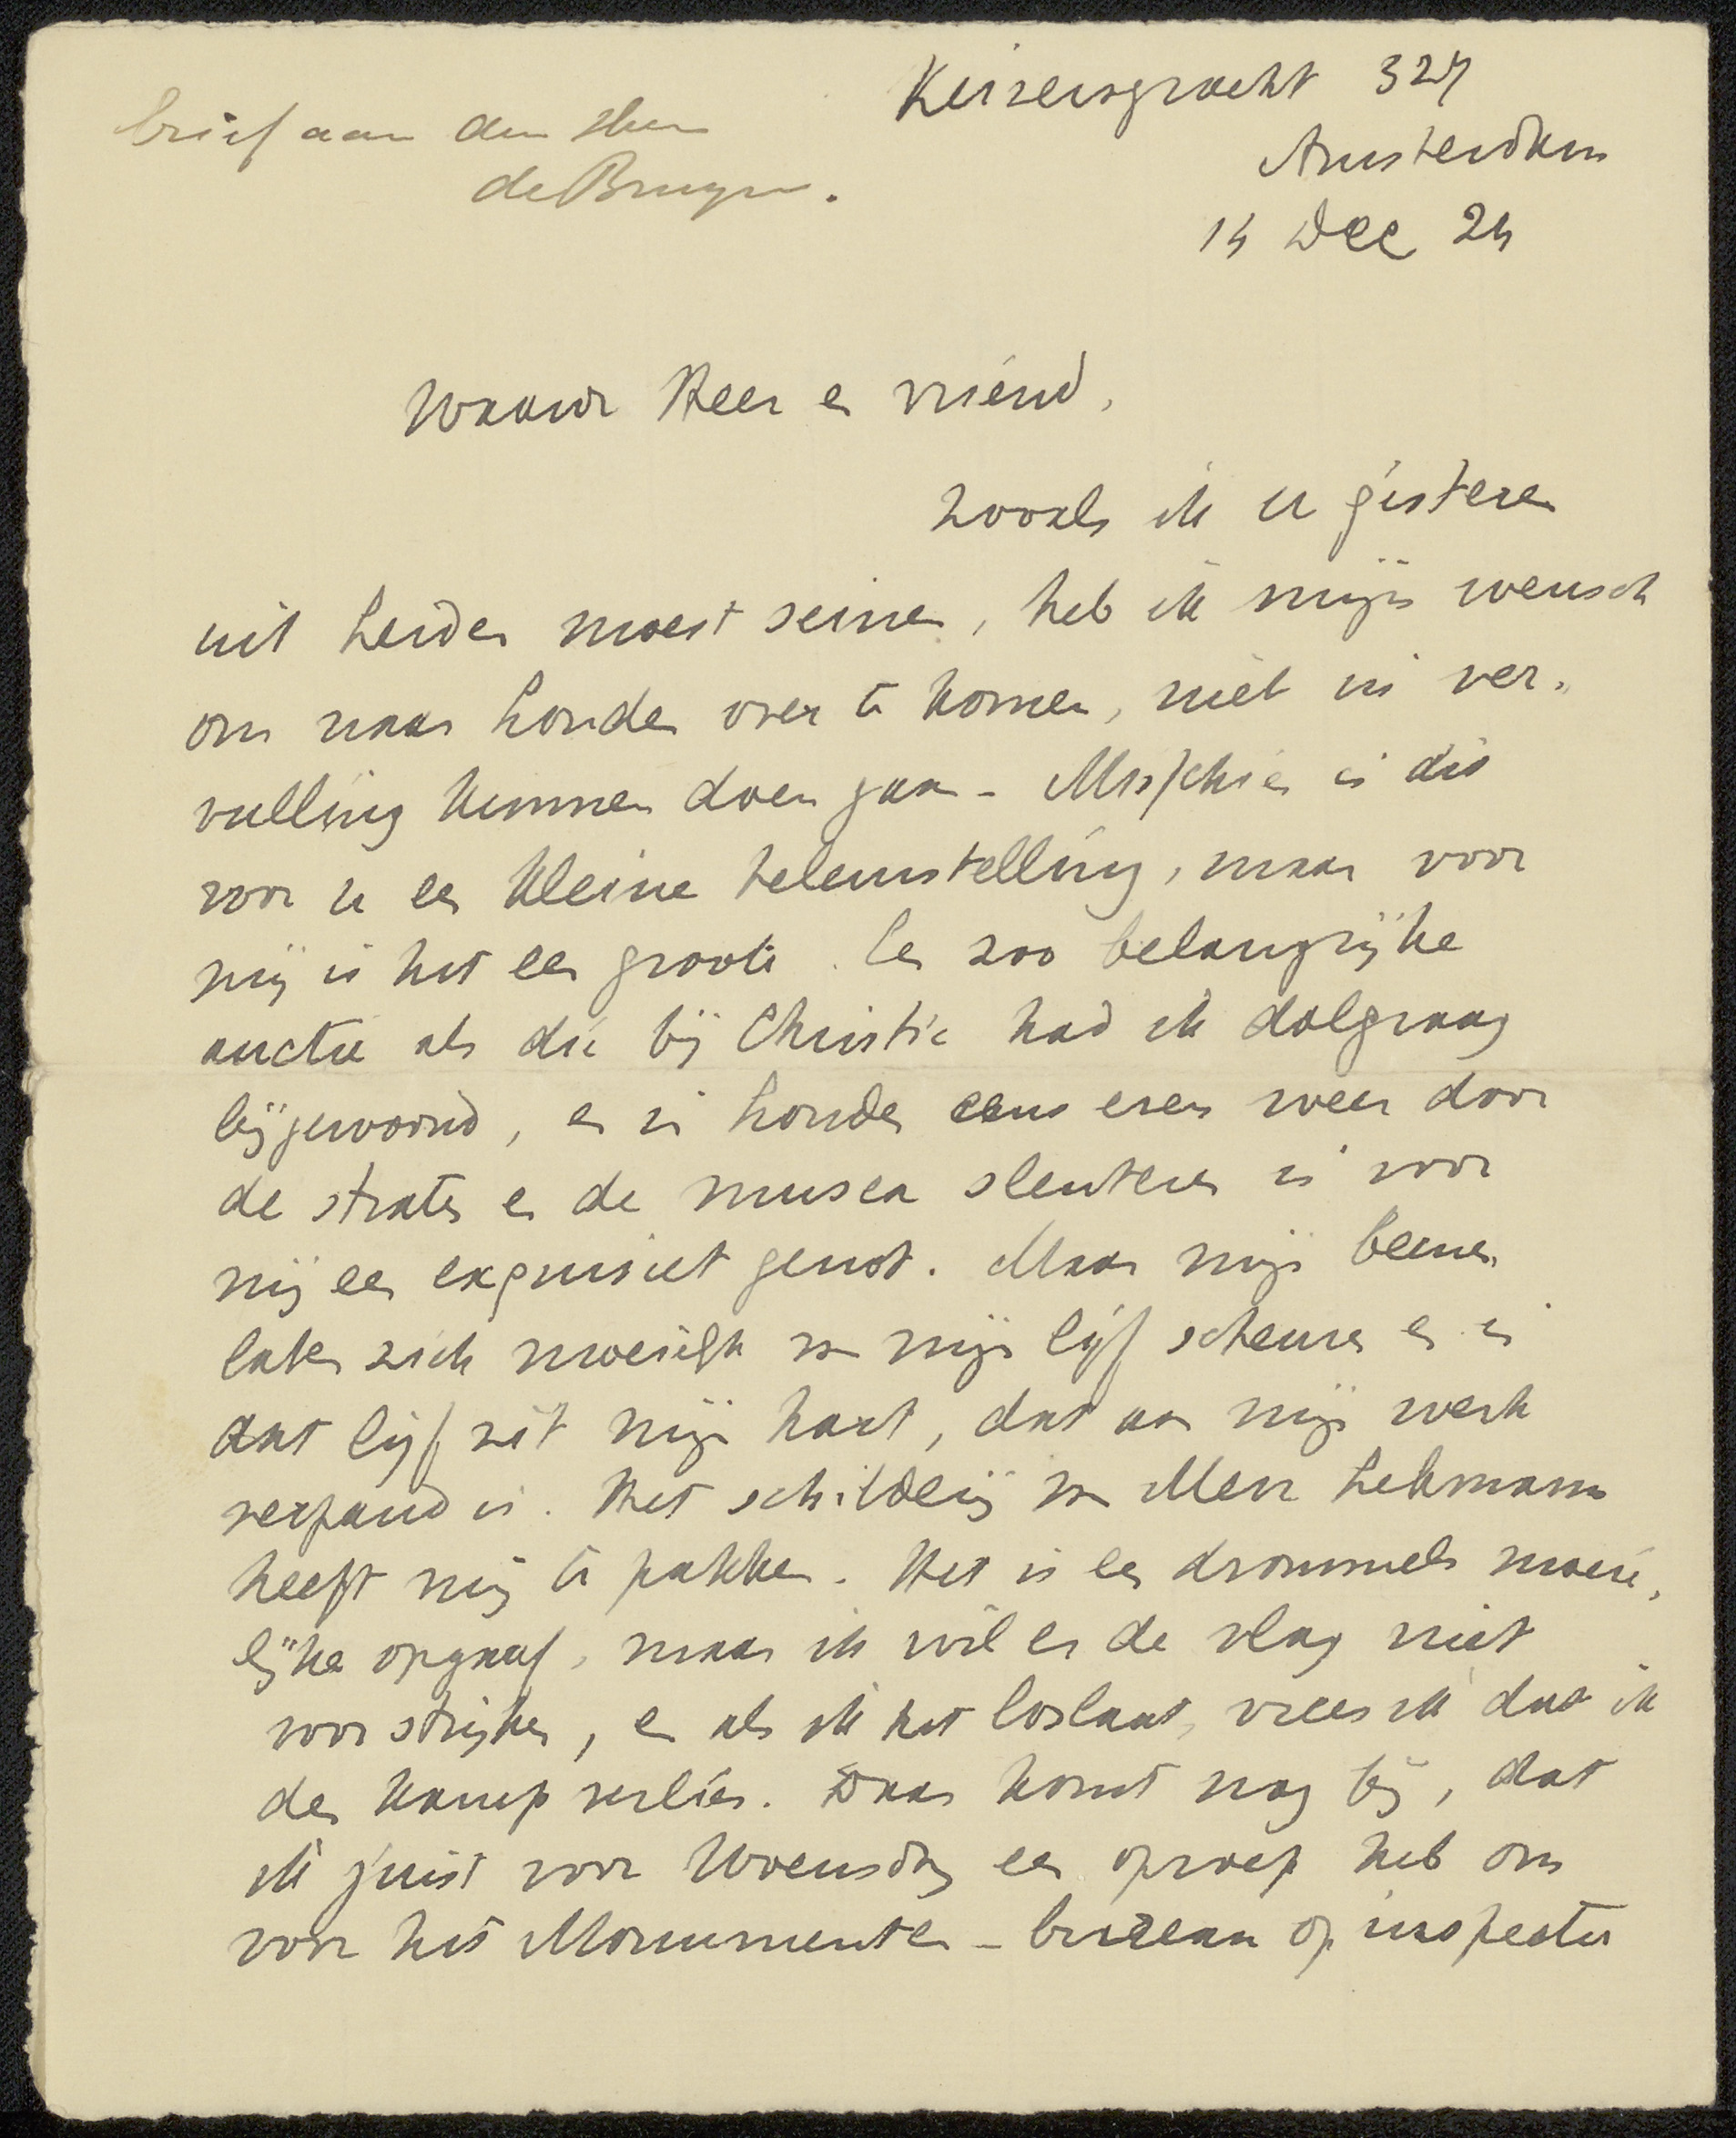 brief aan den Heer
de Bruyn.
Keizersgracht 327
Amsterdam
14 Dec 24
Waarde Heer en vriend,
Zooals ik u gisteren
uit Leiden moest seinen, heb ik mijn wensch
om naar Londen over te komen, niet in ver-
vulling kunnen doen gaan - Misschien is dit
voor u een kleine teleurstelling, maar voor
mij is het een groote. Een zoo belangrijke
auctie als die bij Christie had ik dolgraag
bijgewoond, en in Londen eens even weer door
de straten en de musea slenteren is voor
mij een exquisiet genot. Maar mijn beenen
laten zich moeielijk van mijn lijf scheuren en in
dat lijf zit mijn hart, dat aan mijn werk
verpand is. Het schilderij van Mevr Lehmann
heeft mij te pakken. Het is een drommels moeie-
lijke opgaaf, maar ik wil er de vlag niet
voor strijken, en als ik het loslaat, vrees ik dat ik
den kamp verlies. Daar komt nog bij, dat
ik juist voor Woensdag een oproep heb om
voor het Monumenten-bureau op inspectie